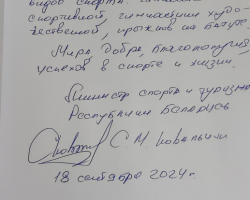 видов спорта: гимнасти
спортивной, гимнастики худо-
жественной, прыжков на батуте.
Мира, Добра, благополучия,
успехов в спорте и жизни.
Министр спорта и туризма
Республики Беларусь
С.М. Ковальчук
18 сентября 2024 г.